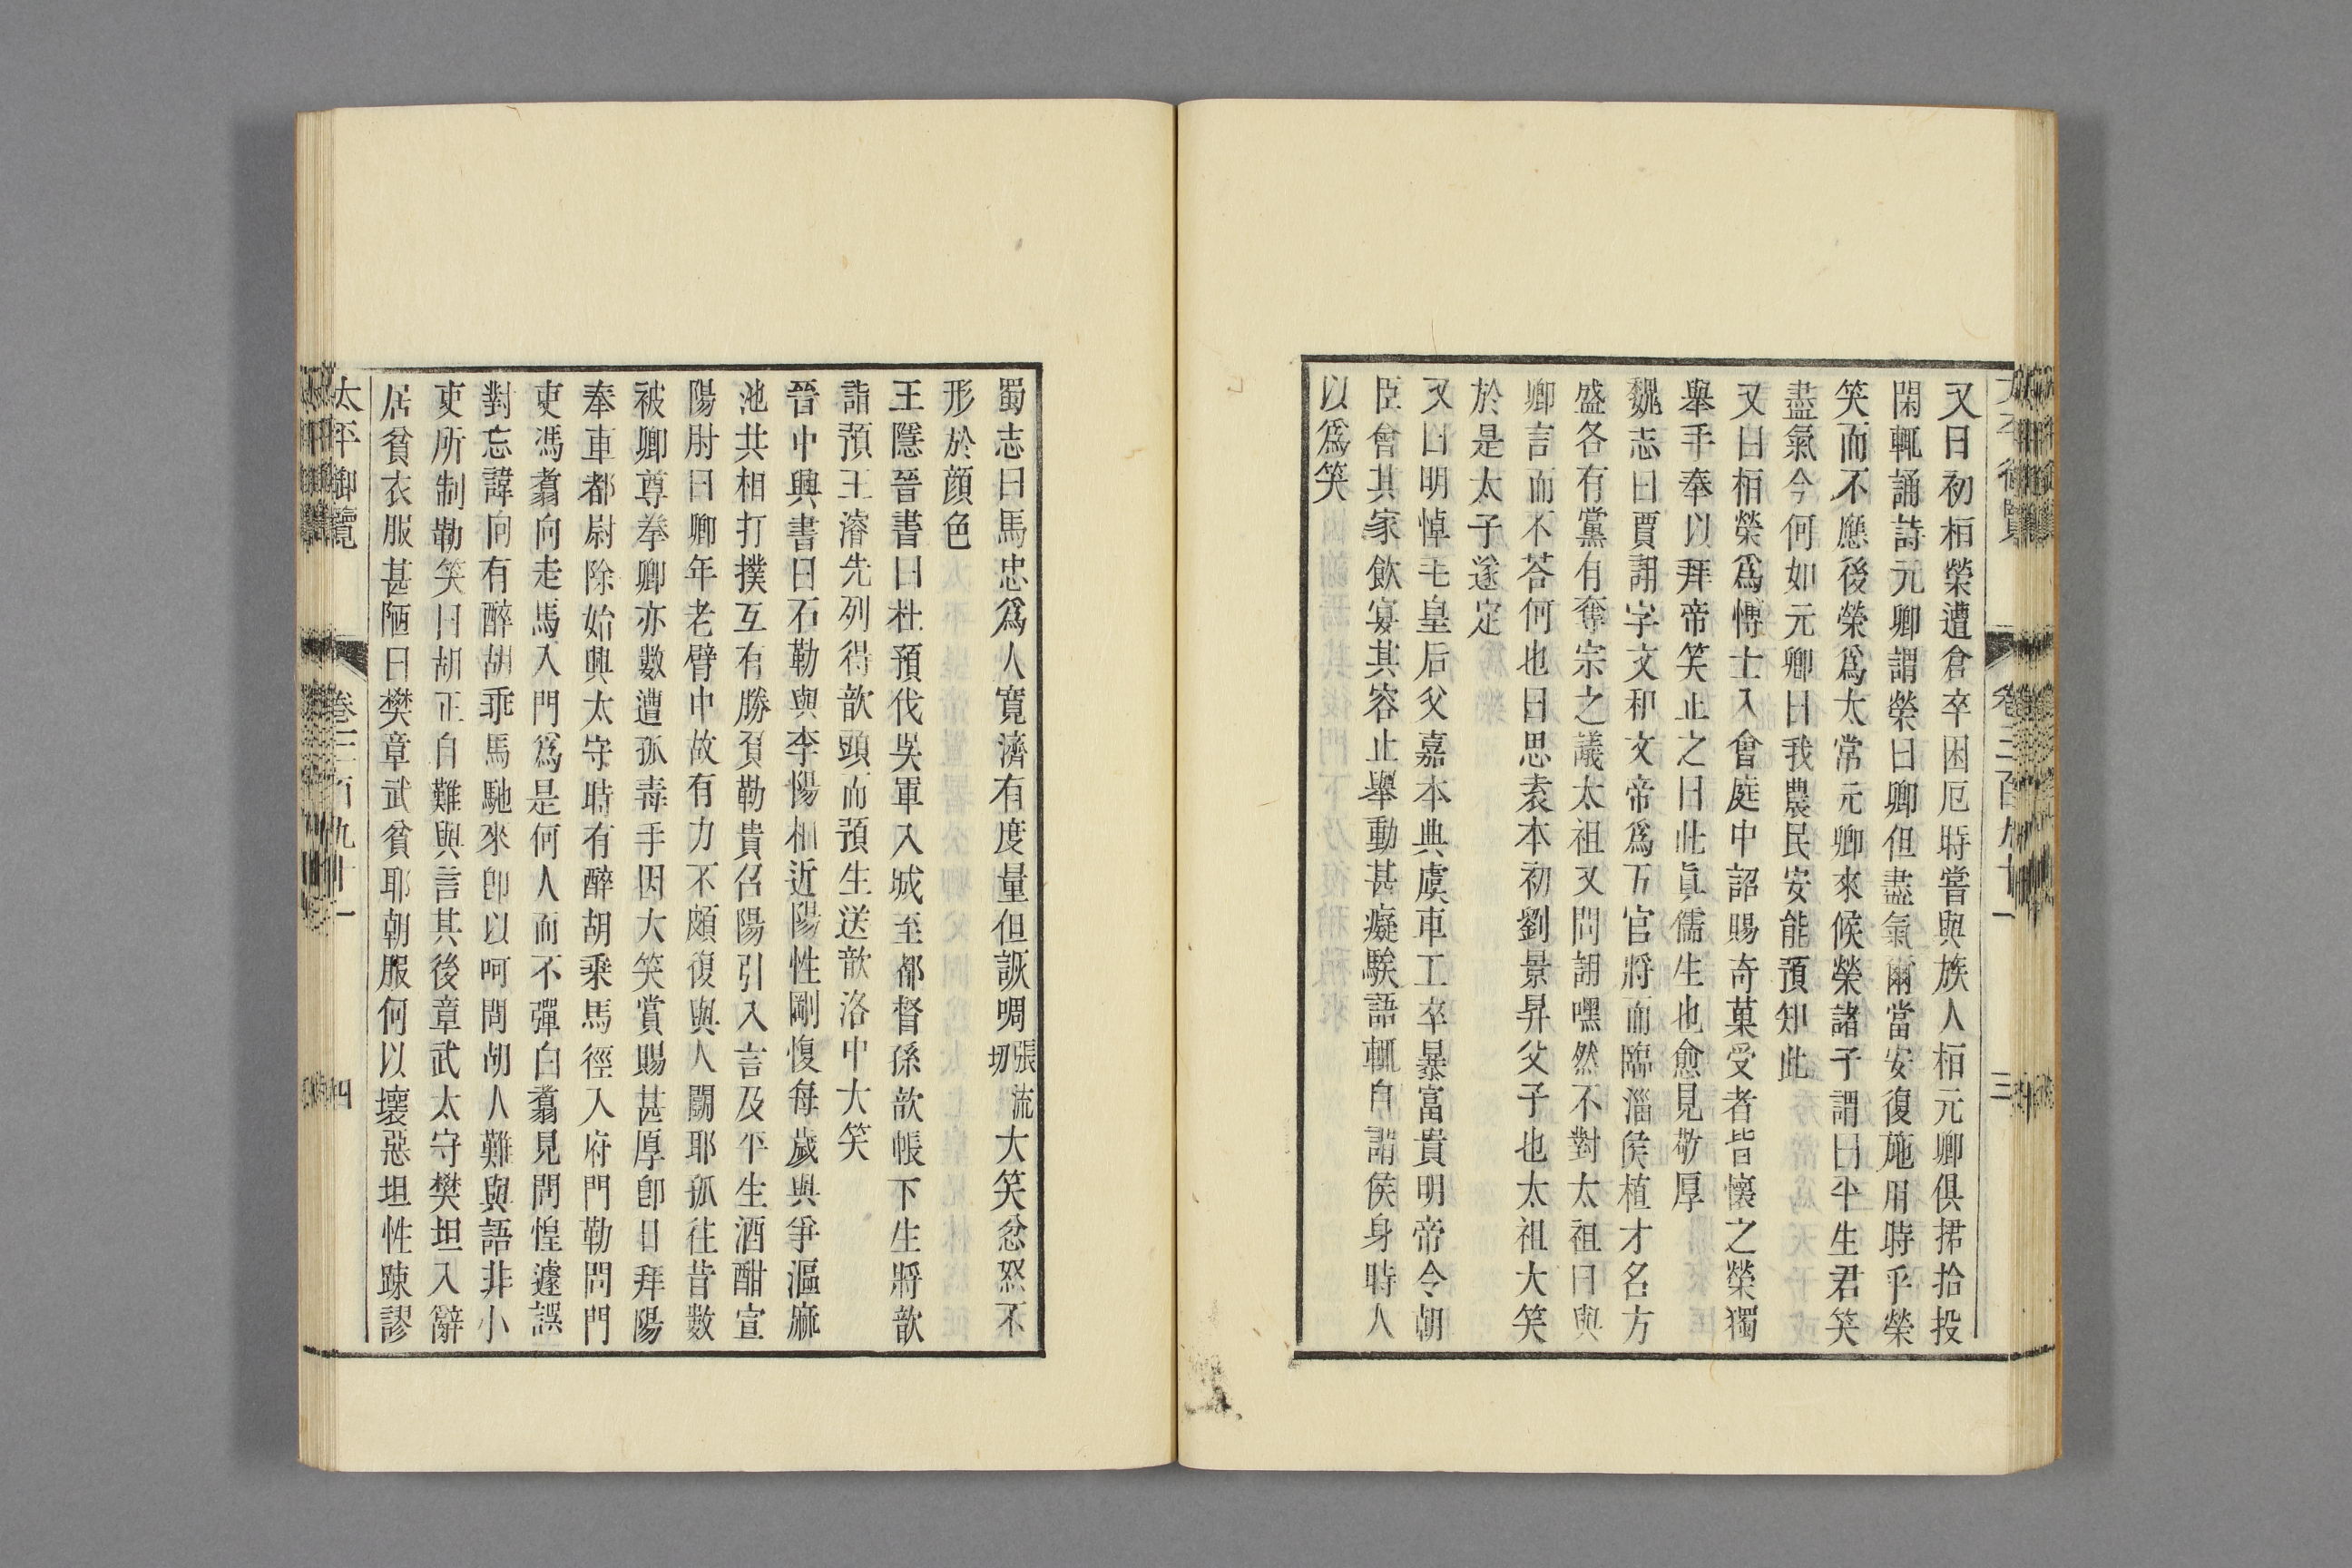 太平御覽 卷三百九十一 三
又曰初栢榮遭倉卒困厄時嘗與族人栢元卿俱捃拾投
閑輒誦詩元卿謂榮曰卿但盡氣爾當安復施用時乎榮
笑而不應後榮爲太常元卿來候榮諸子謂曰平生君笑
盡氣今何如元卿曰我農民安能預知此
又曰栢榮爲博士入會庭中詔賜奇菓受者皆懷之榮獨
舉手奉以拜帝笑止之曰此眞儒生也愈見敬厚
魏志曰賈詡字文和文帝爲五官將而臨淄侯植才名方
盛各有黨有奪宗之議太祖又問詡嘿然不對太祖曰與
卿言而不荅何也曰思袁本初劉景昇父子也太祖大笑
於是太子遂定
又曰明悼毛皇后父嘉本典虞車工卒暴富貴明帝令朝
臣會其家飲宴其容止舉動甚癡騃語輒自謂侯身時人
以爲笑
蜀志曰馬忠爲人寬濟有度量但詼啁張流切大笑忿怒不
形於顏色
王隱晉書曰杜預伐吳軍入城至都督孫歆帳下生將歆
詣預王濬先列得歆頭而預生送歆洛中大笑
晉中興書曰石勒與李陽相近陽性剛愎每歲與爭漚麻
池共相打撲互有勝負勒貴召陽引入言及平生酒酣宣
陽肘曰卿年老臂中故有力不頗復與人鬬耶孤往昔數
被卿尊拳卿亦數遭孤毒手因大笑賞賜甚厚卽日拜陽
奉車都尉除始興太守時有醉胡乘馬徑入府門勒問門
吏馮翥向走馬入門爲是何人而不彈白翥見問惶遽誤
對忘諱向有醉胡乖馬馳來卽以呵問胡人難與語非小
吏所制勒笑曰胡正自難與言其後章武太守樊坦入辭
居貧衣服甚陋曰樊章武貧耶朝服何以壞惡坦性踈謬
太平御覽 卷三百九十一 四